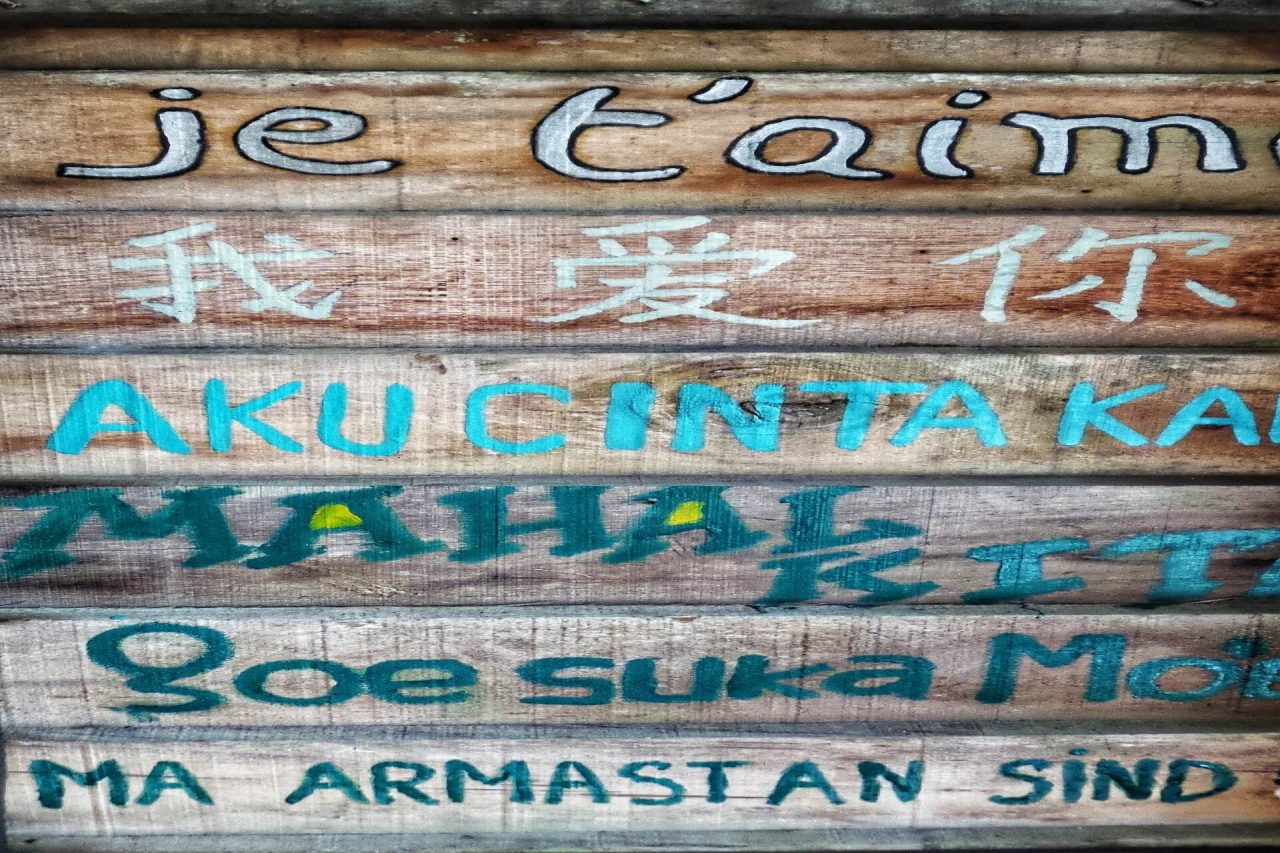 je t'aim
我 爱 你
AKU CINTA KA
MAHAL KIT
goe suka Moi
MA ARMASTAN SiND